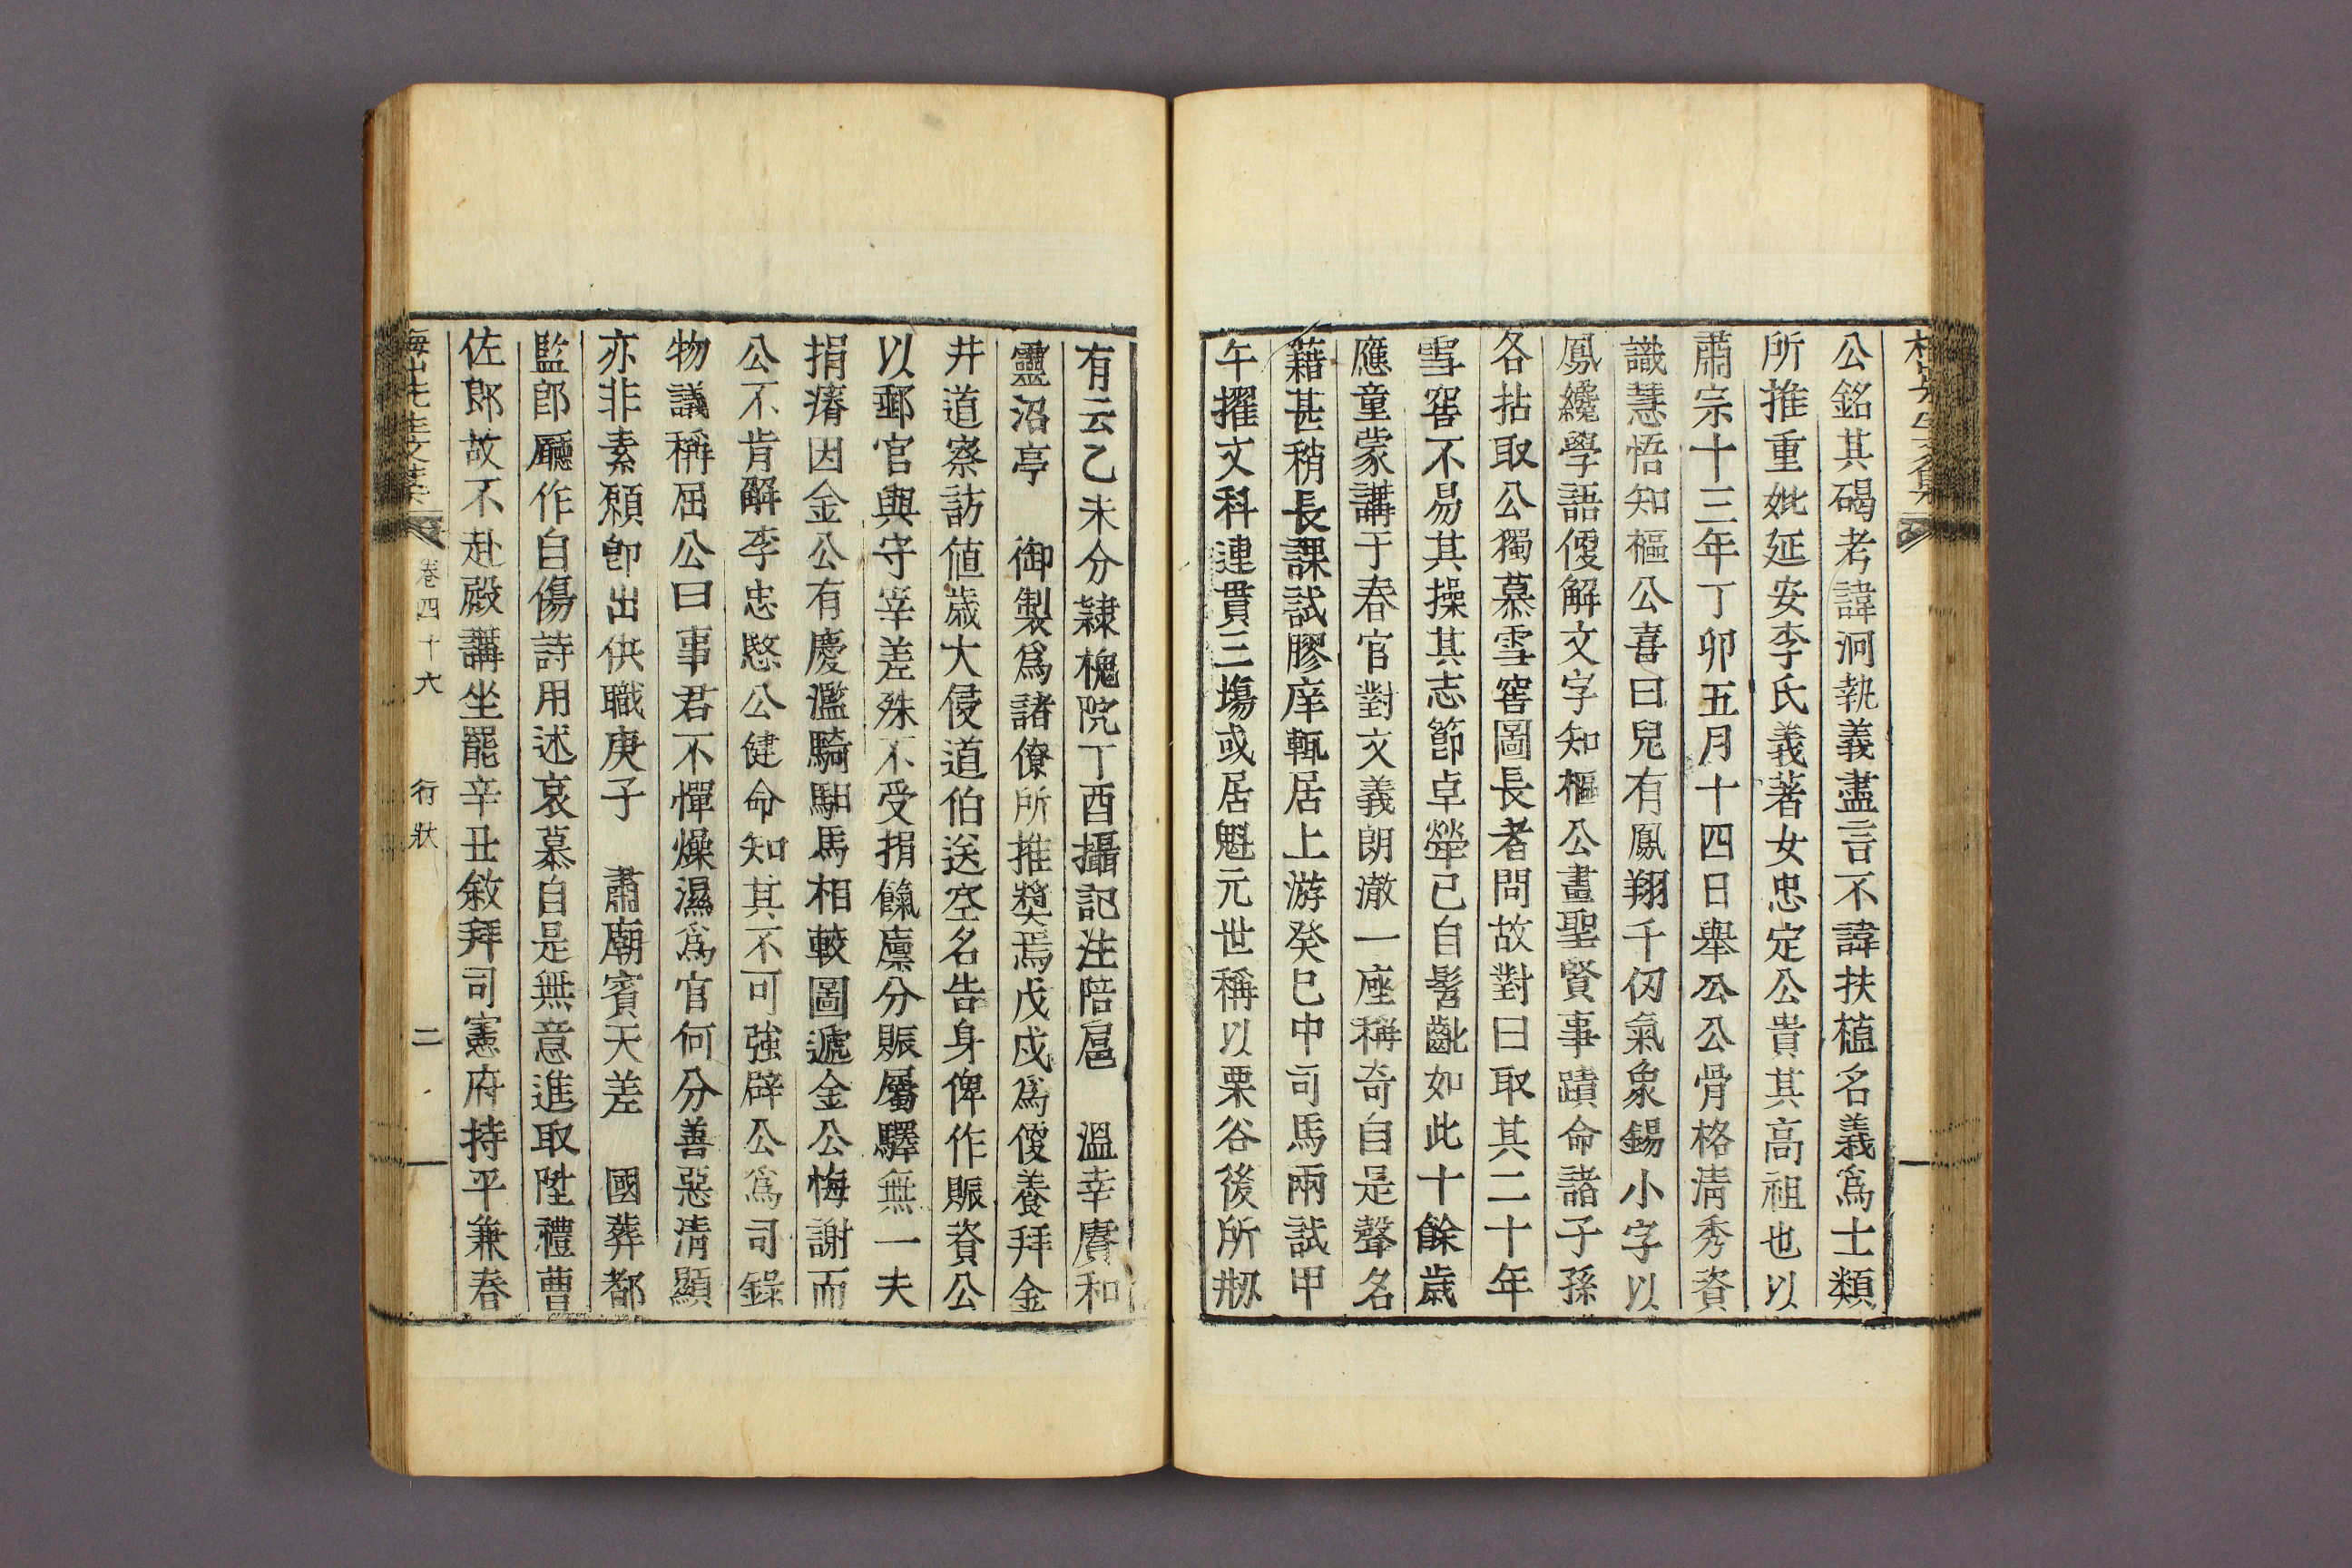 公銘其碣考諱泂執義盡言不諱扶植名義爲士類
所推重妣延安李氏義著女忠定公貴其高祖也以
肅宗十三年丁卯五月十四日舉公公骨格淸秀資
識慧悟知樞公喜曰兒有鳳翔千仞氣象錫小字以
鳳纔學語便解文字知樞公畫聖賢事蹟命諸子孫
各拈取公獨慕雪窖圖長者問故對曰取其二十年
雪窖不易其操其志節卓犖已自髫齔如此十餘歲
應童蒙講于春官對文義朗澈一座稱奇自是聲名
藉甚稍長課試膠庠輒居上游癸巳中司馬兩試甲
午擢文科連貫三場或居魁元世稱以栗谷後所刱
有云乙未分隸槐院丁酉攝記注陪扈 溫幸賡和
靈沼亭 御製爲諸僚所推奬焉戊戌爲便養拜金
井道察訪値歲大侵道伯送空名告身俾作賑資公
以郵官與守宰差殊不受捐餼廩分賑屬驛無一夫
捐瘠因金公有慶濫騎馹馬相較圖遞金公悔謝而
公不肯解李忠愍公健命知其不可強辟公爲司錄
物議稱屈公曰事君不憚燥濕爲官何分善惡淸顯
亦非素願卽出供職庚子 肅廟賓天差 國葬都
監郎廳作自傷詩用述哀慕自是無意進取陞禮曹
佐郎故不赴殿講坐罷辛丑敘拜司憲府持平兼春
卷四十六 行狀 二